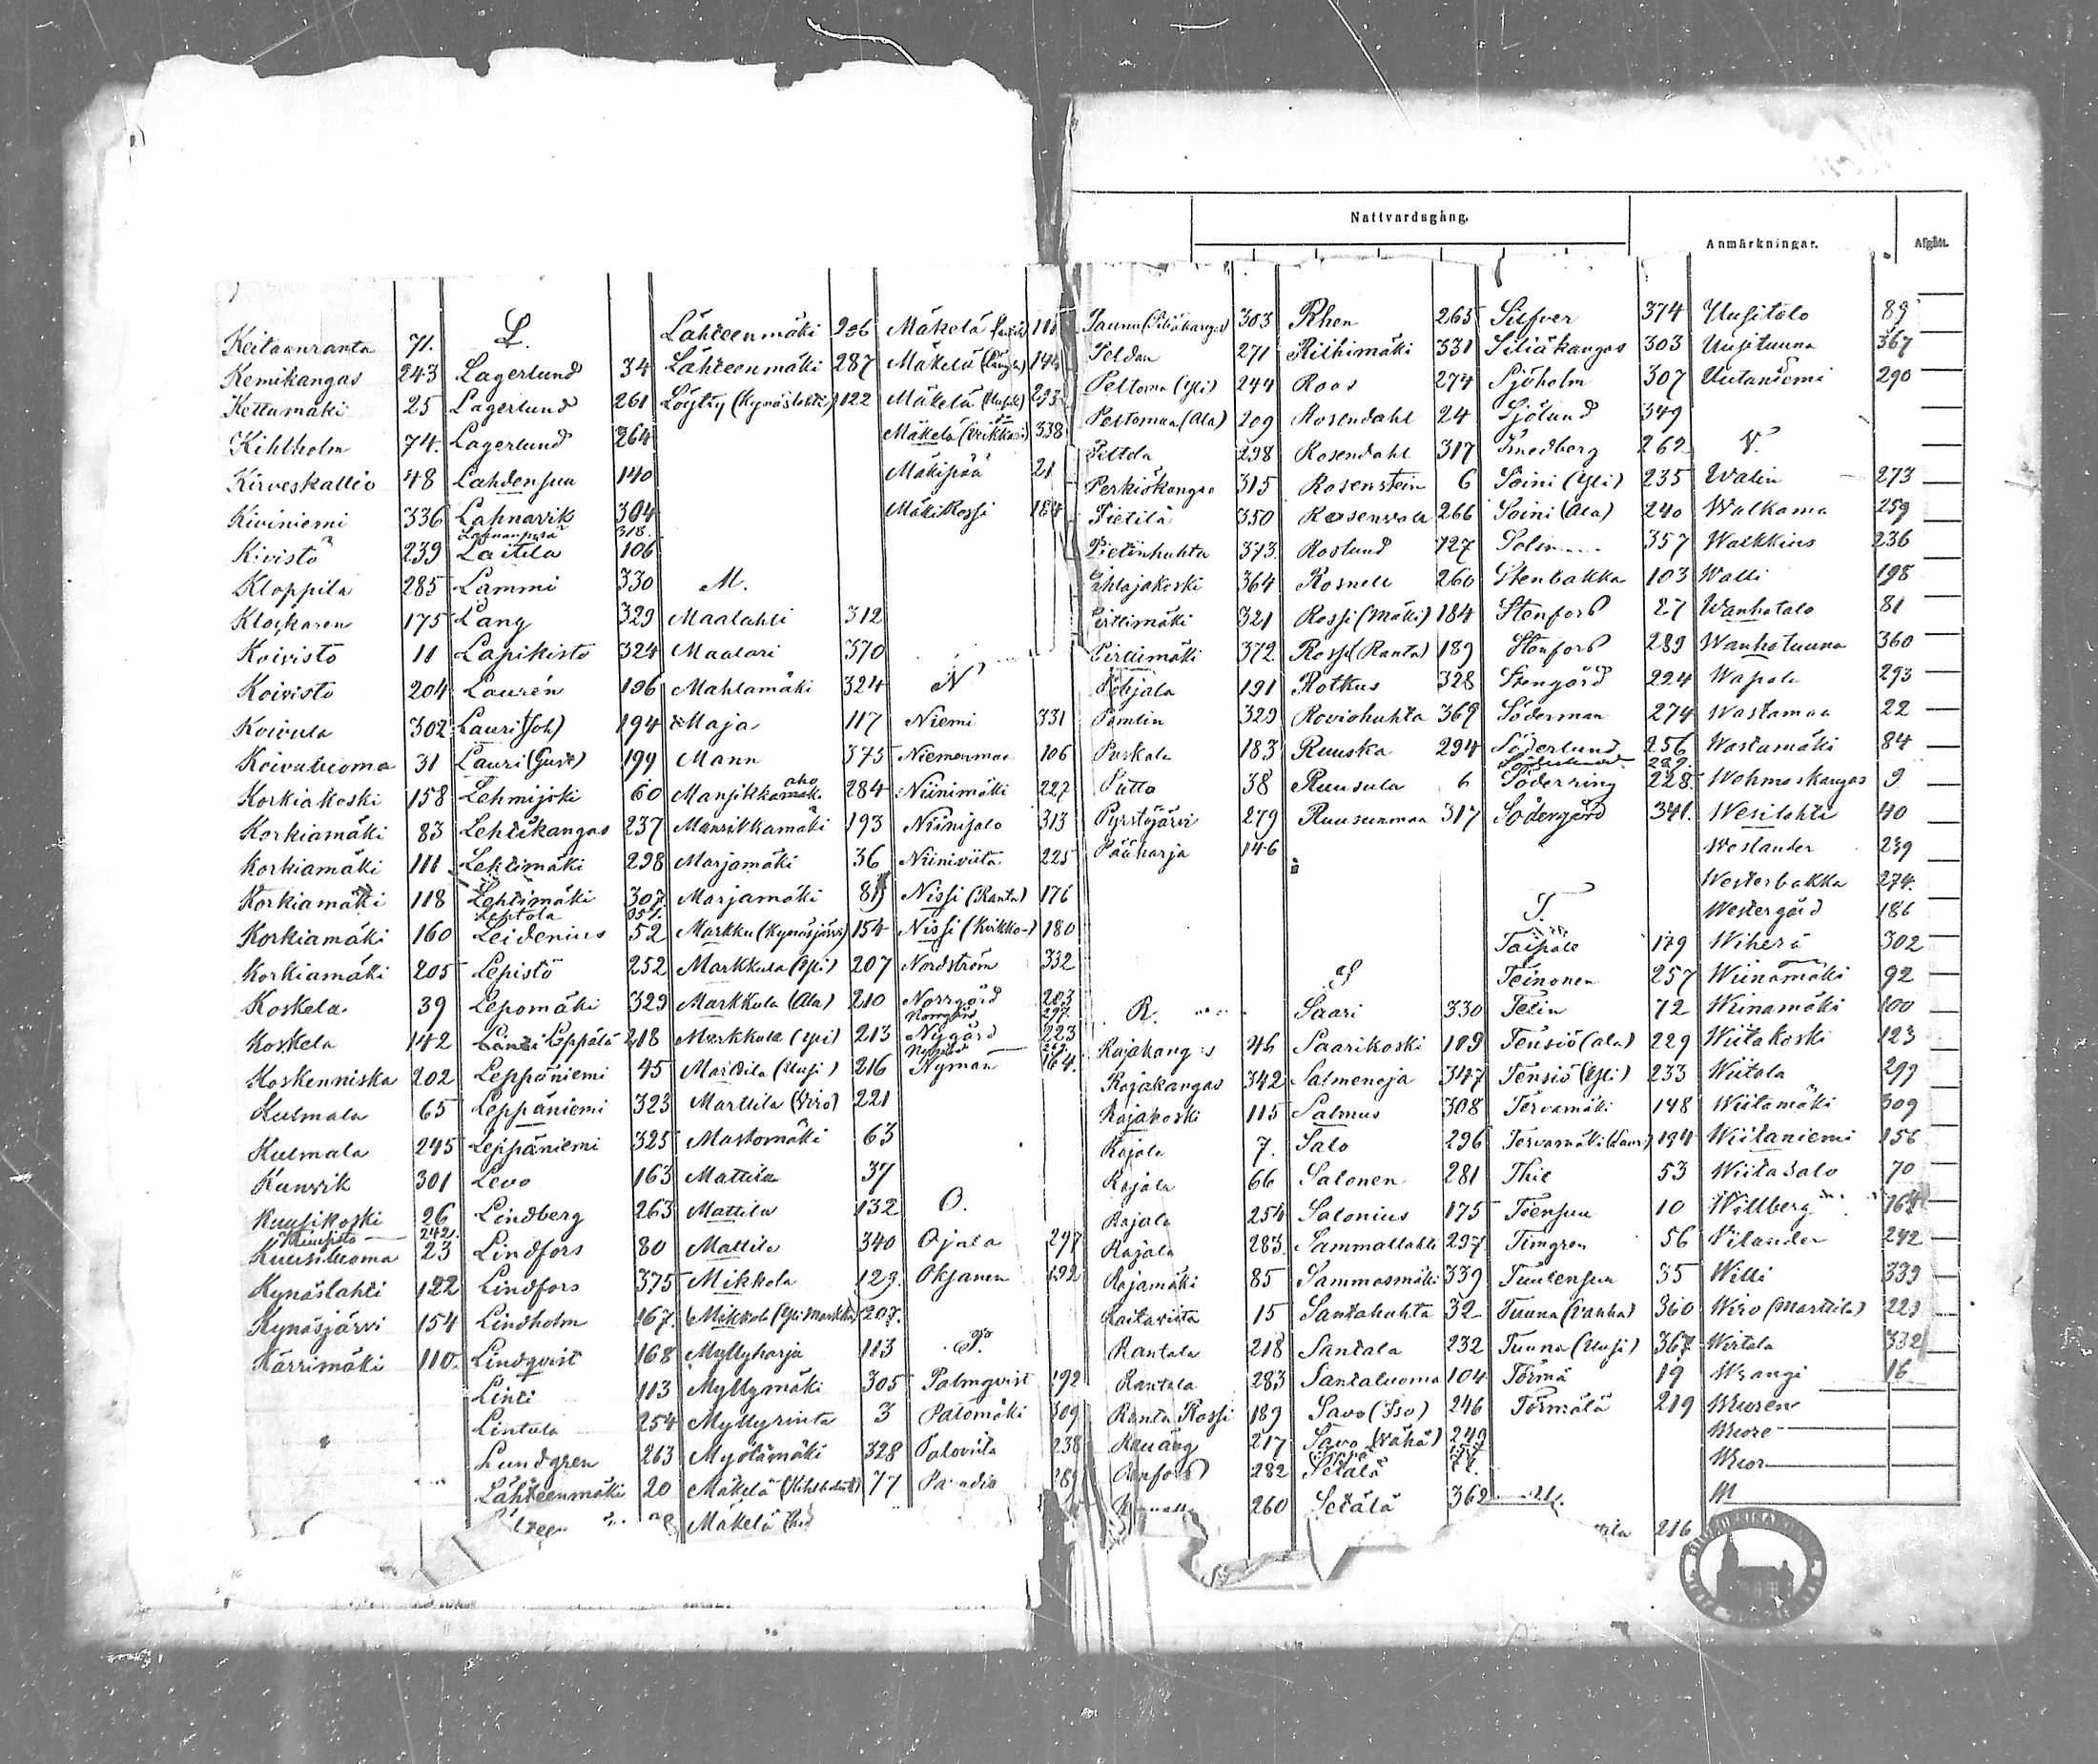 Nattvardsgång.
Anmärkningar.
Afgått.
Keitaanranta 71.
Kemikangas 243
Kettumäki 25
Kihlholm 74.
Kirveskallio 48
Kiviniemi 336
Kivistö 239
Kloppila 285
Klockaren 175
Koivisto 11
Koivisto 204
Koivula 302
Koivuluoma 31
Korkiakoski 158
Korkiamäki 83
Korkiamäki 111
Korkiamäki 118
Korkiamäki 160
Korkiamäki 205
Koskela 39
Koskela 142
Koskenniska 202
Kulmala 65
Kulmala 245
Kunvik 301
Kuusikoski 26
Kuusisto 242
Kuusiluoma 23
Kynäslahti 122
Kynäsjärvi 154
Kärrimäki 110.
L.
Lagerlund 34
Lagerlund 261
Lagerlund 264
Lahdensuu 140
Lahnavik 304
Lahnanperä 318.
Laitila 106
Lammi 330
Lang 329
Lapikisto 324
Laurén 196
Lauri (Joh) 194
Lauri (Gust) 199
Lehmijoki 60
Lehtikangas 237
Lehtimäki 298
Lehtimäki 307
Lehtola 351.
Leidenius 52
Lepistö 252
Lepomäki 329
Leppälä 218
Leppäniemi 45
Leppäniemi 323
Leppäniemi 325
Levo 163
Lindberg 263
Lindfors 80
Lindfors 375
Lindholm 167.
Lindqvist 168
Linti 113
Lintula 254
Lundgren 263
Lähteenmäki 20
Lähteenmäki 206
Lähteenmäki 287
Löyty (Kynäslahti) 122
M.
Maalahti 312
Maalari 370
Mahlamäki 324
Maja 117
Mann 375
Mansikka aho 284
Mansikkamäki 193
Marjamäki 36
Marjamäki 81
Markku (Kynäsjärvi) 154
Markkula (Yli) 207
Markkula (Ala) 210
Markkula (Yli) 213
Marttila (Uusi) 216
Marttila (Wiro) 221
Mastomäki 63
Mattila 37
Mattila 132
Mattila 340
Mikkola 129.
Mikkola (Yli Markkula) 207.
Myllyharja 113
Myllymäki 305
Myllyrinta 3
Myötämäki 328
Mäkelä (Kihlholm) 77
Mäkelä
Mäkelä
Mäkelä 144
Mäkelä (Uusi)
Mäkelä (Veikkari) 338
Mäkipää 21
Mäki Rossi 184
N
Niemi 331
Niemenmaa 106
Niinimäki 227
Niinisalo 313
Niiniviita 225
Nissi (Ranta) 176
Nissi (Kirkko-) 180
Nordström 332
Norrgård 203
Norrgård 297.
Nygård 223
Nygård
Nyman 164.
O.
Ojala 297
Oksanen 192
P.
Palmqvist 192
Palomäki 309
Paloviita 238
Paunu (Siliäkangas) 303
Peldan 271
Peltoma (Yli) 244
Peltomaa (Ala) 209
Peltola 298
Perkiökangas 315
Pietilä 350
Pietinhuhta 373.
Pihlajakoski 364
Pirttimäki 321
Pirttimäki 372
Pohjala 191
Pomlin 329
Puskala 183
Putto 38
Pyrstöjärvi 279
Pääharja 146
R.
Rajakangas 46
Rajakangas 342
Rajakoski 115
Rajala 7.
Rajala 66
Rajala 254
Rajala 283.
Rajamäki 85
Raitaviita 15
Rantala 218
Rantala 283
Ranta Rossi 189
Rauäng 217
Renfors 282
260
Rhen 265
Riihimäki 331
Roos 274
Rosendahl 24
Rosendahl 317
Rosenstein 6
Rosenvall 266
Roslund 127
Rosnell 260
Rossi (Mäki) 184
Rossi (Ranta) 189
Rotkus 328
Roviohuhta 369
Ruuska 294
Ruusula 6
Ruusunmaa 317
S
Saari 330
Saarikoski 189
Salmenoja 347
Salmus 308
Salo 296
Salonen 281
Salonius 175
Sammallahti 297
Sammasmäki 339
Santahuhta 32
Santala 232
Santaluoma 104
Savo (Iso) 246
Savo (Vähä) 249
Setälä
Setälä 362
Silfver 374
Siliäkangas 303
Sjöholm 307
Sjölund 349
Smedberg 262
Soini (Yli) 235
Soini (Ala) 240
357
Stenbakka 103
Stenfors 27
Stenfors 289
Stengård 224
Söderman 274
Söderlund 256
Söderlund 282.
Söderring 228.
Södergård 341.
T.
Taipale 179
Teinonen 257
Telin 72
Tensiö (Ala) 229
Tensiö (Yli) 233
Tervamäki 148
Tervamäki (Lauri) 194
Thil 53
Tiensuu 10
Timgren 56
Tuulensuu 35
Tuuna (Vanha) 360
Tuuna (Uusi) 367
Törmä 19
Törmälä 219
U.
216
Uusitalo 89
Uusituuna 367
Uutaniemi 290
V.
Walin 273
Walkama 259
Walkkius 236
Walli 198
Wanhatalo 81
Wanhatuuna 360
Wapola 293
Wastamaa 22
Wastamäki 84
Wehmaskangas 9
Wesilahti 40
Weslander 239
Westerbakka 274.
Westergård 186
Wiherä 302
Wiinamäki 92
Wiinamäki 100
Wiitakoski 123
Wiitala 299
Wiitamäki 309
Wiitaniemi 156
Wiitasalo 70
Willberg 164
Vilander 242
Willi 339
Wiro (Marttila) 221
Wirtala 332
Wrangi 16